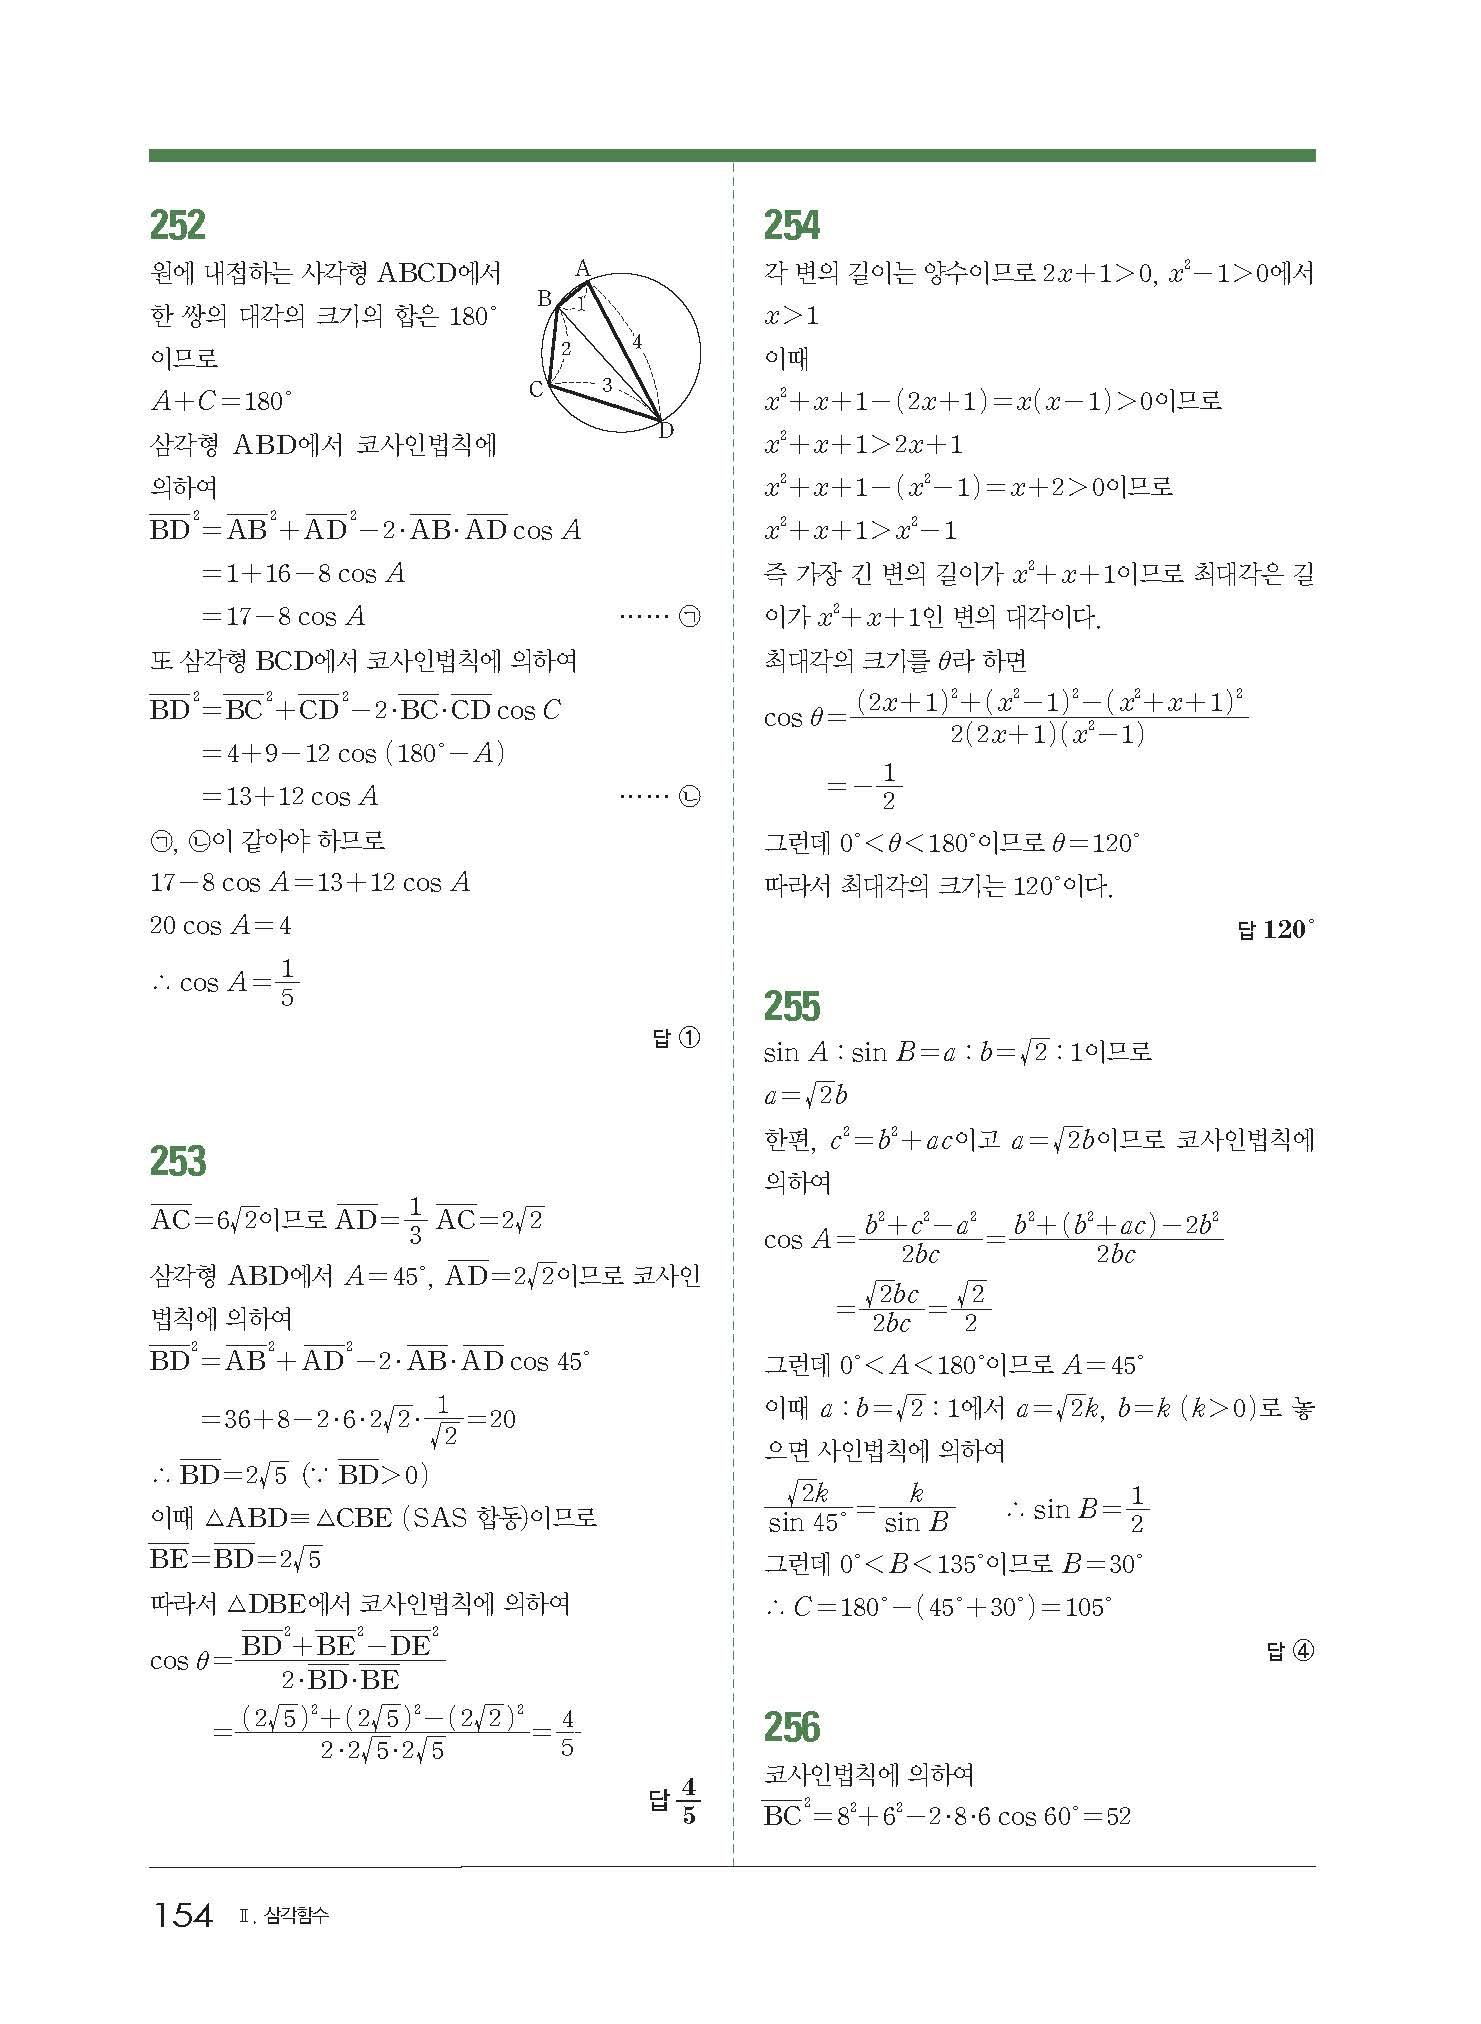 252
원에 내접하는 사각형 ABCD에서
한 쌍의 대각의 크기의 합은 180°
이므로
A+C=180°
삼각형 ABD에서 코사인법칙에
의하여
A
B
1
2
4
C
3
D
\overline{BD}²=\overline{AB}²+\overline{AD}²-2·\overline{AB}·\overline{AD} cos A
=1+16-8 cos A
=17-8 cos A …… ㉠
또 삼각형 BCD에서 코사인법칙에 의하여
\overline{BD}²=\overline{BC}²+\overline{CD}²-2·\overline{BC}·\overline{CD} cos C
=4+9-12 cos (180°-A)
=13+12 cos A …… ㉡
㉠, ㉡이 같아야 하므로
17-8 cos A=13+12 cos A
20 cos A=4
∴ cos A=\frac{1}{5}
답 ①
253
\overline{AC}=6√2이므로 \overline{AD}=\frac{1}{3} \overline{AC}=2√2
삼각형 ABD에서 A=45°, \overline{AD}=2√2이므로 코사인
법칙에 의하여
\overline{BD}²=\overline{AB}²+\overline{AD}²-2·\overline{AB}·\overline{AD} cos 45°
=36+8-2·6·2√2·\frac{1}{√2}=20
∴ \overline{BD}=2√5 (∵ \overline{BD}>0)
이때 △ABD≡△CBE (SAS 합동)이므로
\overline{BE}=\overline{BD}=2√5
따라서 △DBE에서 코사인법칙에 의하여
cos θ=\frac{\overline{BD}²+\overline{BE}²-\overline{DE}²}{2·\overline{BD}·\overline{BE}}
=\frac{(2√5)²+(2√5)²-(2√2)²}{2·2√5·2√5}=\frac{4}{5}
답 \frac{4}{5}
254
각 변의 길이는 양수이므로 2x+1>0, x²-1>0에서
x>1
이때
x²+x+1-(2x+1)=x(x-1)>0이므로
x²+x+1>2x+1
x²+x+1-(x²-1)=x+2>0이므로
x²+x+1>x²-1
즉 가장 긴 변의 길이가 x²+x+1이므로 최대각은 길
이가 x²+x+1인 변의 대각이다.
최대각의 크기를 θ라 하면
cos θ=\frac{(2x+1)²+(x²-1)²-(x²+x+1)²}{2(2x+1)(x²-1)}
=-\frac{1}{2}
그런데 0°<θ<180°이므로 θ=120°
따라서 최대각의 크기는 120°이다.
답 120°
255
sin A : sin B=a : b=√2 : 1이므로
a=√2b
한편, c²=b²+ac이고 a=√2b이므로 코사인법칙에
의하여
cos A=\frac{b²+c²-a²}{2bc}=\frac{b²+(b²+ac)-2b²}{2bc}
=\frac{√2bc}{2bc}=\frac{√2}{2}
그런데 0°<A<180°이므로 A=45°
이때 a : b=√2 : 1에서 a=√2k, b=k (k>0)로 놓
으면 사인법칙에 의하여
\frac{√2k}{sin 45°}=\frac{k}{sin B} ∴ sin B=\frac{1}{2}
그런데 0°<B<135°이므로 B=30°
∴ C=180°-(45°+30°)=105°
답 ④
256
코사인법칙에 의하여
\overline{BC}²=8²+6²-2·8·6 cos 60°=52
154 Ⅱ. 삼각함수